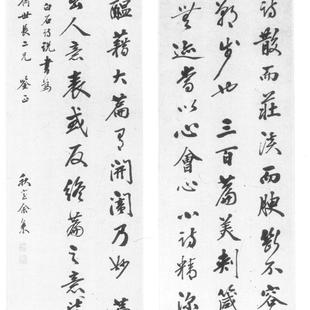 詩散而莊淡而腴斷不容
鄲步也三百篇美刺箴
無迹當以心會心小詩精深
醞藉大篇有開闔乃妙
出人意表或反終篇之意皆
白石詩說書為
世長二兄鑒正
秋室余集